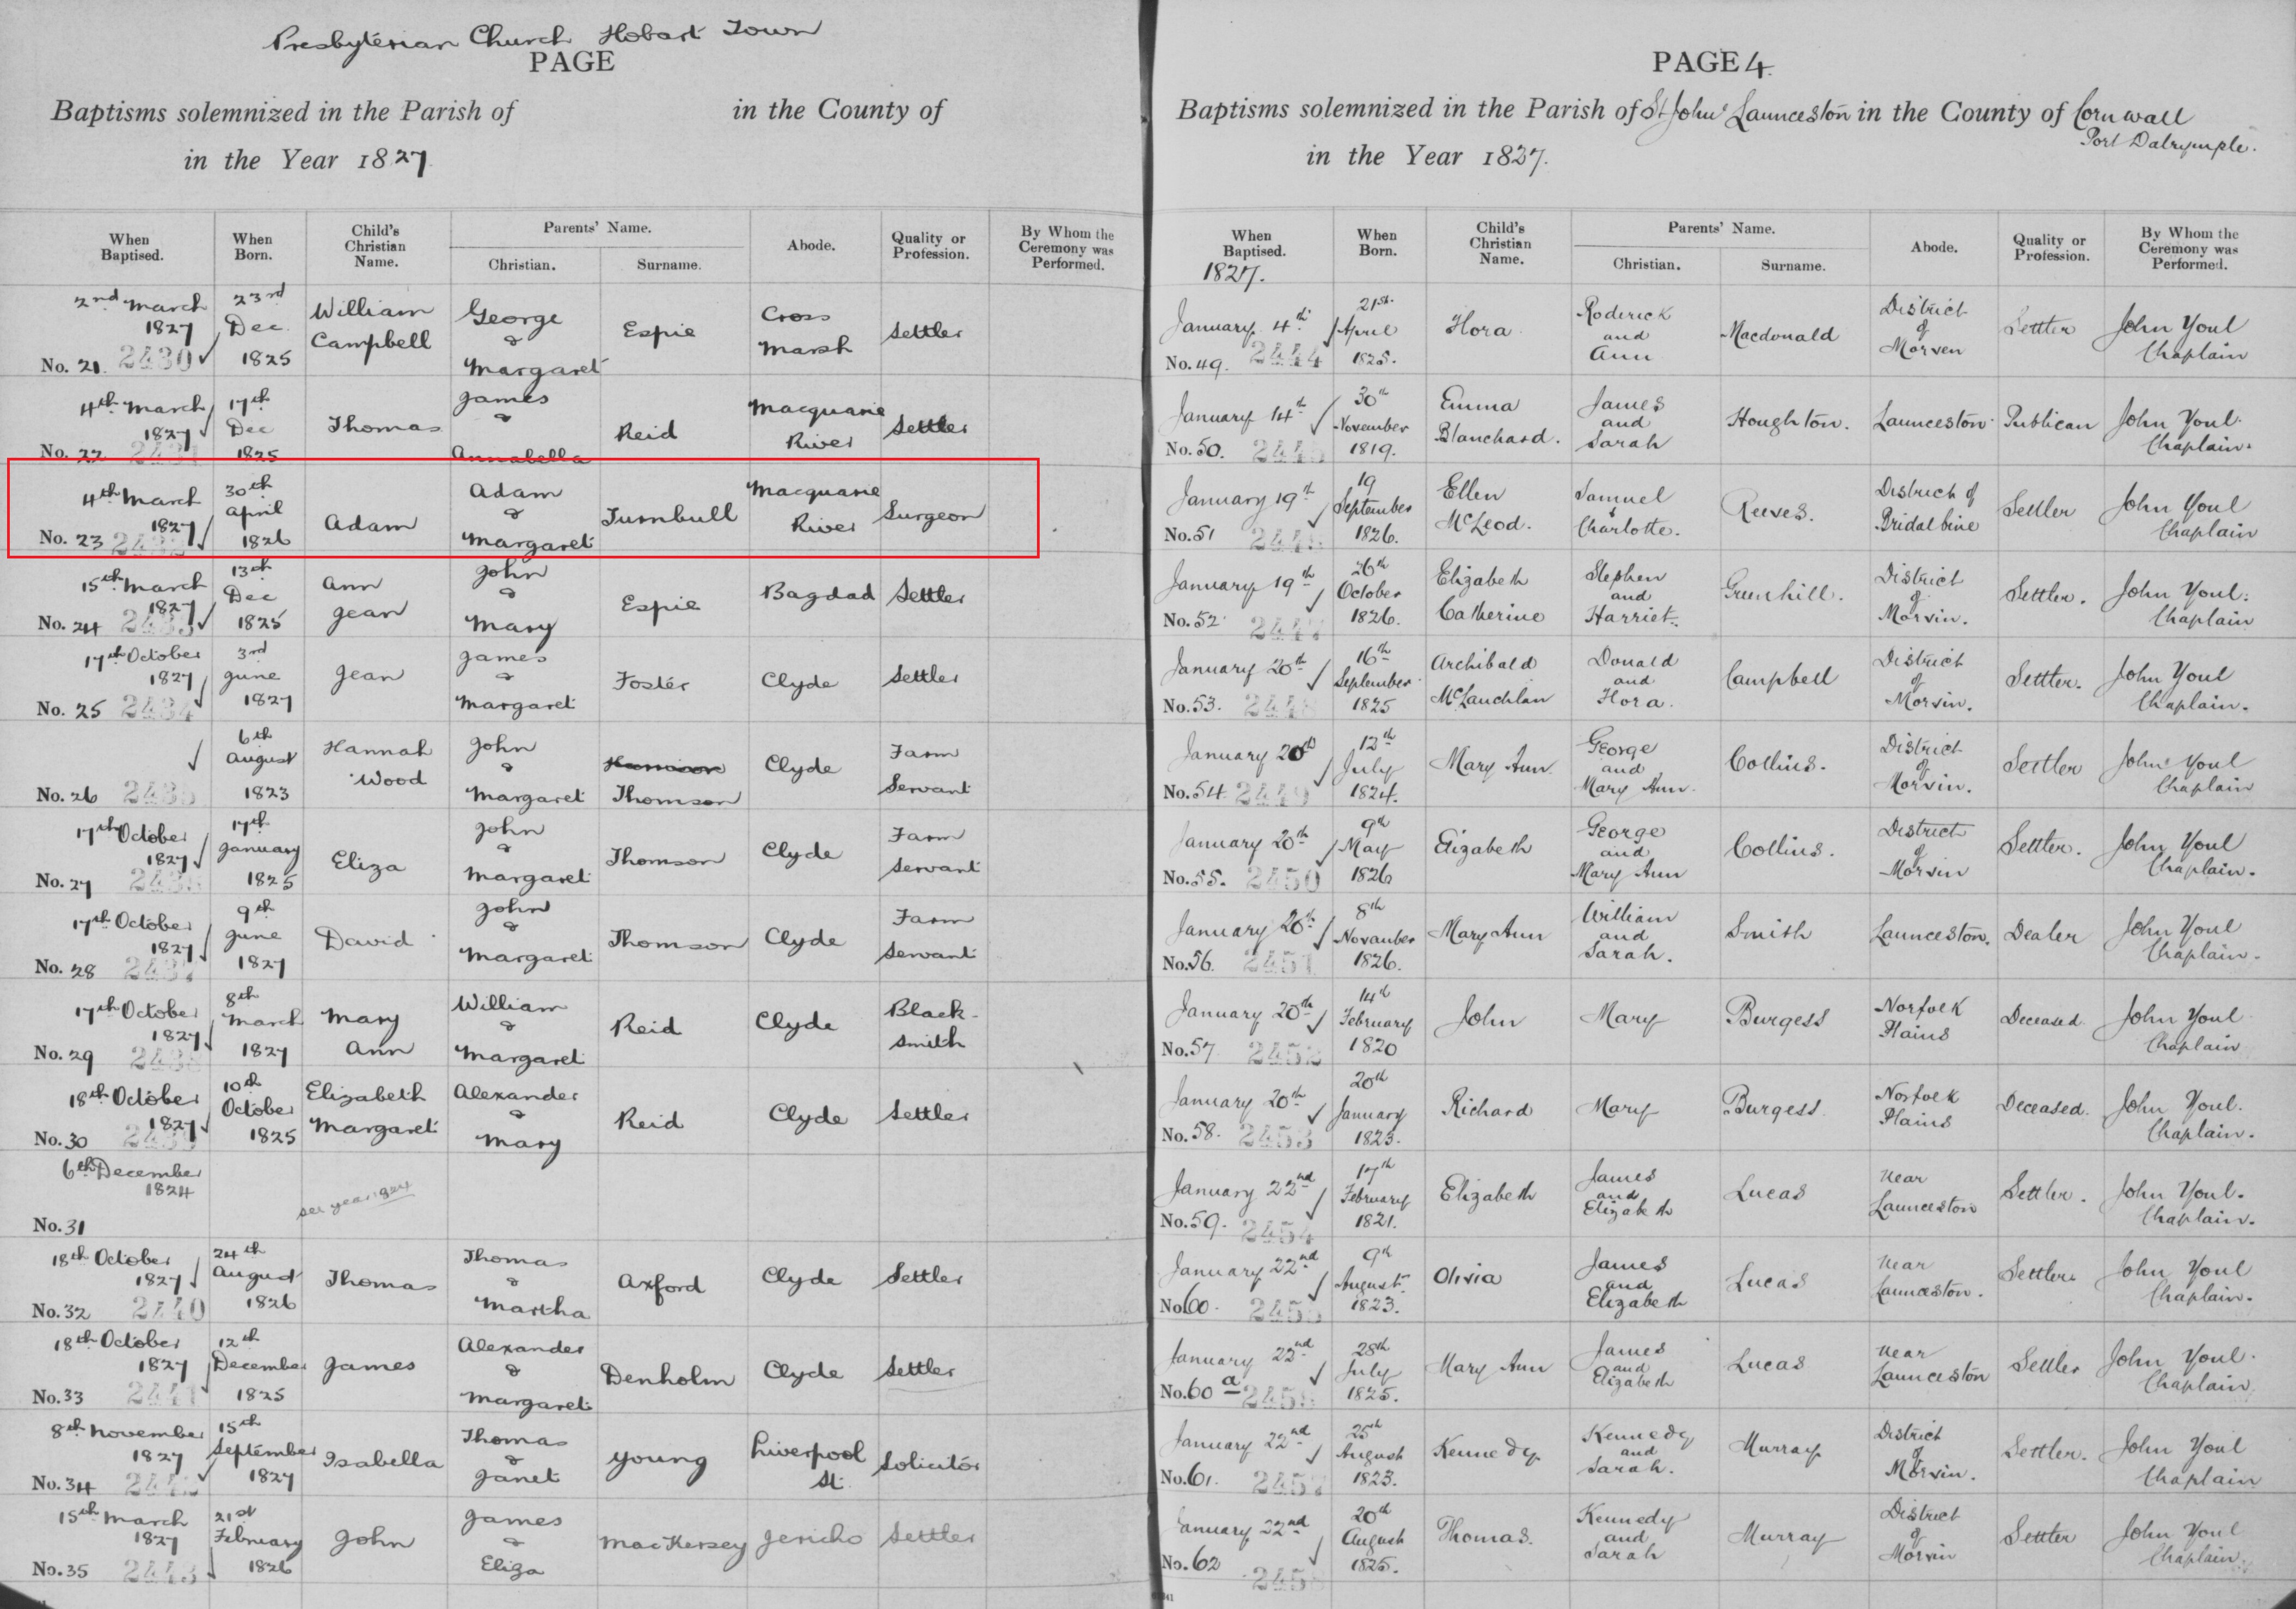 Presbyterian Church Hobart Town
PAGE
Baptisms solemnized in the Parish of in the County of
in the Year 1827.
When Baptised. When Born. Child's Christian Name. Parents' Name. Christian. Surname. Abode. Quality or Profession. By Whom the Ceremony was Performed.
2nd March 1827 No. 21. 2430 23rd Dec. 1825 William Campbell George & Margaret Espie Cross Marsh Settler
4th March 1827 No. 22 2431 17th Dec 1825 Thomas James & Annabella Reid Macquarie River Settler
4th March 1827 No. 23 2432 30th April 1826 Adam Adam & Margaret Turnbull Macquarie River Surgeon
15th March 1827 No. 24 2433 13th Dec 1825 Ann Jean John & Mary Espie Bagdad Settler
17th October 1827 No. 25 2434 3rd June 1827 Jean James & Margaret Foster Clyde Settler
No. 26 2435 6th August 1823 Hannah Wood John & Margaret Thomson Clyde Farm Servant
17th October 1827 No. 27 2436 17th January 1825 Eliza John & Margaret Thomson Clyde Farm Servant
17th October 1827 No. 28 2437 9th June 1827 David John & Margaret Thomson Clyde Farm Servant
17th October 1827 No. 29 2438 8th March 1827 Mary Ann William & Margaret Reid Clyde Black-smith
18th October 1827 No. 30 2439 10th October 1825 Elizabeth Margaret Alexander & Mary Reid Clyde Settler
6th December 1824 No. 31 see year 1824
18th October 1827 No. 32 2440 24th August 1826 Thomas Thomas & Martha Axford Clyde Settler
18th October 1827 No. 33 2441 12th December 1825 James Alexander & Margaret Denholm Clyde Settler
8th November 1827 No. 34 2442 15th September 1827 Isabella Thomas & Janet Young Liverpool St. Solicitor
15th March 1827 No. 35 2443 21st February 1826 John James & Eliza MacKersey Jericho Settler
PAGE 4.
Baptisms solemnized in the Parish of St John's Launceston in the County of Cornwall
Port Dalrymple.
in the Year 1827.
When Baptised. When Born. Child's Christian Name. Parents' Name. Christian. Surname. Abode. Quality or Profession. By Whom the Ceremony was Performed.
1827.
January 4th No. 49. 2444 21st April 1825. Flora Roderick and Ann Macdonald District of Morven Settler John Youl Chaplain
January 14th No. 50. 2445 30th November 1819. Emma Blanchard. James and Sarah Houghton. Launceston Publican John Youl. Chaplain.
January 19th No. 51 2446 19 September 1826. Ellen McLeod. Samuel & Charlotte. Reeves. District of Bridalbine Settler John Youl Chaplain
January 19th No. 52 2447 26th October 1826. Elizabeth Catherine Stephen and Harriet. Greenhill. District of Morvin. Settler. John Youl. Chaplain
January 20th No. 53. 2448 16th September 1825 Archibald McLauchlan Donald and Flora. Campbell District of Morvin. Settler. John Youl Chaplain.
January 20th No. 54. 2449 12th July 1824. Mary Ann George and Mary Ann. Collins. District of Morvin. Settler John Youl Chaplain
January 20th No. 55. 2450 9th May 1826 Elizabeth George and Mary Ann Collins. District of Morvin Settler. John Youl Chaplain.
January 20th No. 56. 2451 8th November 1826. Mary Ann William and Sarah. Smith Launceston. Dealer John Youl Chaplain.
January 20th No. 57 2452 14th February 1820 John Mary Burgess Norfolk Plains Deceased John Youl Chaplain
January 20th No. 58. 2453 20th January 1823. Richard Mary Burgess Norfolk Plains Deceased. John Youl. Chaplain.
January 22nd No. 59. 2454 17th February 1821. Elizabeth James and Elizabeth Lucas near Launceston Settler. John Youl. Chaplain.
January 22nd No. 60. 2455 9th August 1823. Olivia James and Elizabeth Lucas near Launceston. Settler John Youl Chaplain.
January 22nd No. 60 a 2456 28th July 1825. Mary Ann James and Elizabeth Lucas near Launceston Settler John Youl. Chaplain
January 22nd No. 61. 2457 25th August 1823. Kennedy Kennedy and Sarah. Murray District of Morvin. Settler. John Youl Chaplain
January 22nd No. 62 2458 20th August 1825. Thomas. Kennedy and Sarah Murray District of Morvin Settler John Youl Chaplain.